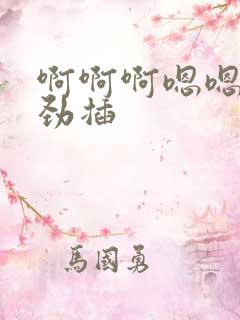 啊啊啊嗯嗯
劲插
馬國勇